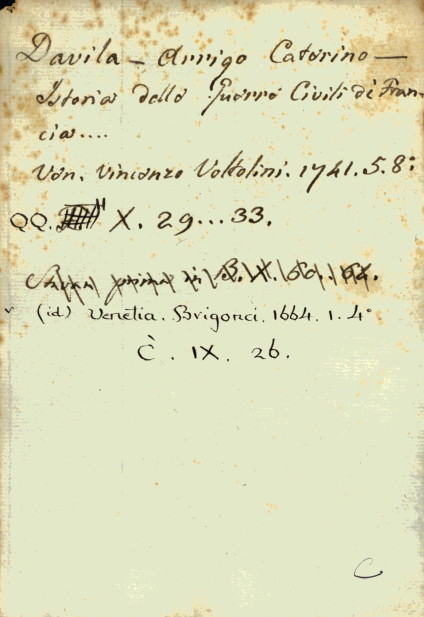 Davila - Arrigo Caterino -
Istoria delle Guerre Civili di Fran-
cia....
Ven. Vincenzo Voltolini. 1741. 5. 8°
QQ. X. 29...33.
(id) Venetia. Brigonci. 1664. 1. 4°
È. IX. 26.
C